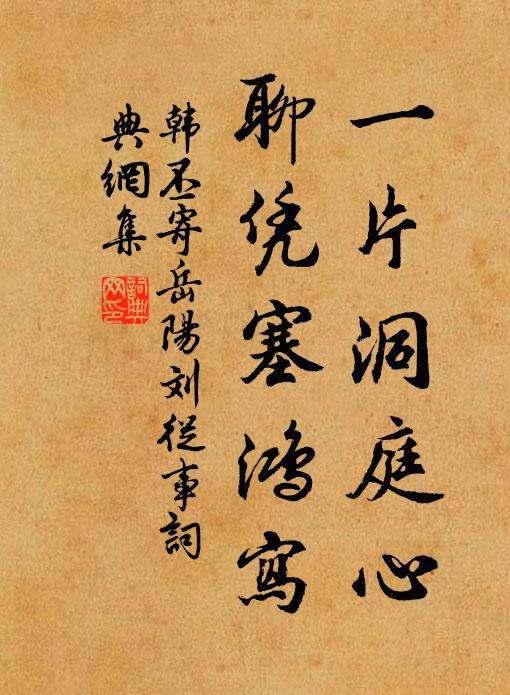 一片洞庭心
聊凭塞鴻寫
韩丕寄岳陽刘從事詞
典網集
詞典
网印